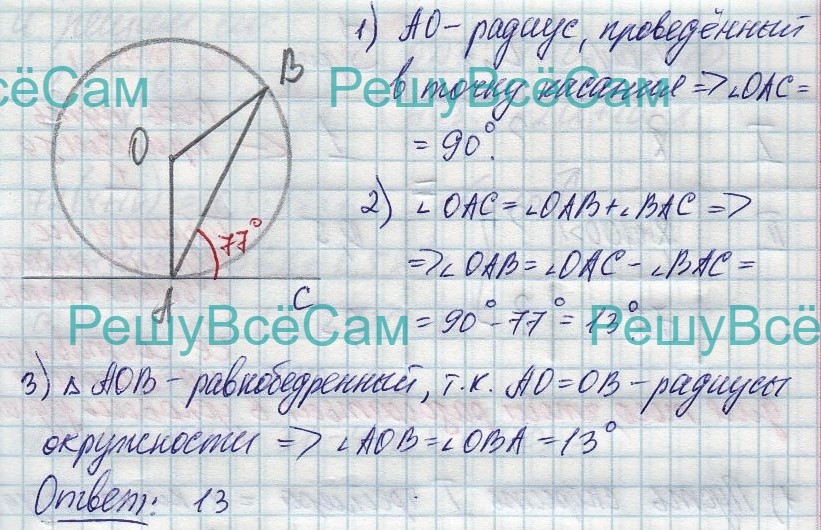 1) АО - радиус, проведённый
в точку касания => ∠OAC =
= 90°.
2) ∠OAC = ∠OAB + ∠BAC =>
=> ∠OAB = ∠OAC - ∠BAC =
= 90° - 77° = 13°
3) Δ AOB - равнобедренный, т.к. AO = OB - радиусы
окружности => ∠AOB = ∠OBA = 13°
Ответ: 13
B
O
77°
A
C
сёСам
РешуВсёСам
РешуВсёСам
РешуВсё